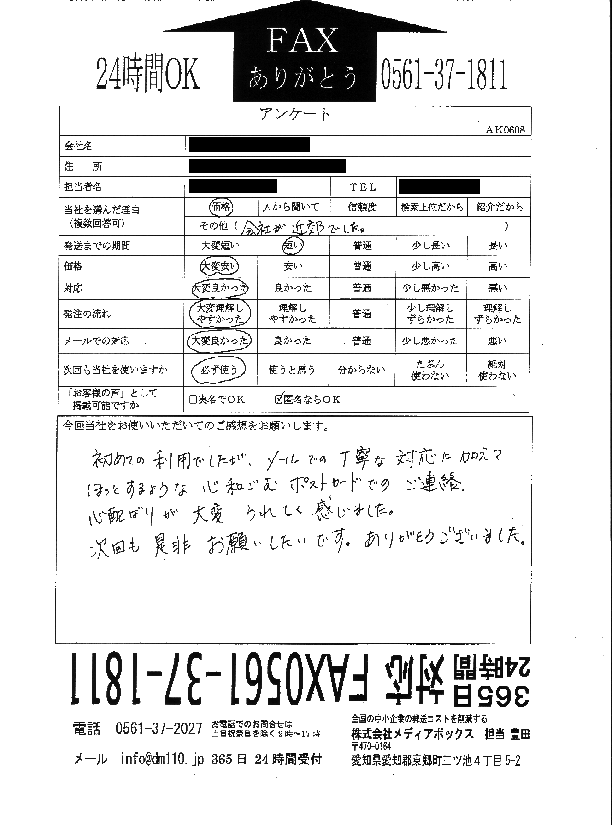 FAX
ありがとう
24時間OK
0561-37-1811
アンケート
AK0608
会社名
住 所
担当者名 TEL
当社を選んだ理由 (複数回答可) 価格 人から聞いて 信頼度 検索上位だから 紹介だから
その他 ( 会社が近郊でした。 )
発送までの期間 大変短い 短い 普通 少し長い 長い
価格 大変安い 安い 普通 少し高い 高い
対応 大変良かった 良かった 普通 少し悪かった 悪い
発注の流れ 大変理解しやすかった 理解しやすかった 普通 少し理解しずらかった 理解しずらかった
メールでの対応 大変良かった 良かった 普通 少し悪かった 悪い
次回も当社を使いますか 必ず使う 使うと思う 分からない たぶん使わない 絶対使わない
「お客様の声」として掲載可能ですか □実名でOK ☑匿名ならOK
今回当社をお使いいただいてのご感想をお願いします。
初めての利用でしたが、メールでの丁寧な対応に加えて
ほっとするような心和ごむポストカードでのご連絡
心配ばりが大変られしく感じました。
次回も是非お願いしたいです。ありがとうございました。
365日24時間対応 FAX0561-37-1811
電話 0561-37-2027 お電話でのお問合せは土日祝祭日を除く9時〜17時
メール info@dm110.jp 365日24時間受付
全国の中小企業の郵送コストを削減する
株式会社メディアボックス 担当 豊田
〒470-0164
愛知県愛知郡東郷町二ツ池4丁目5-2